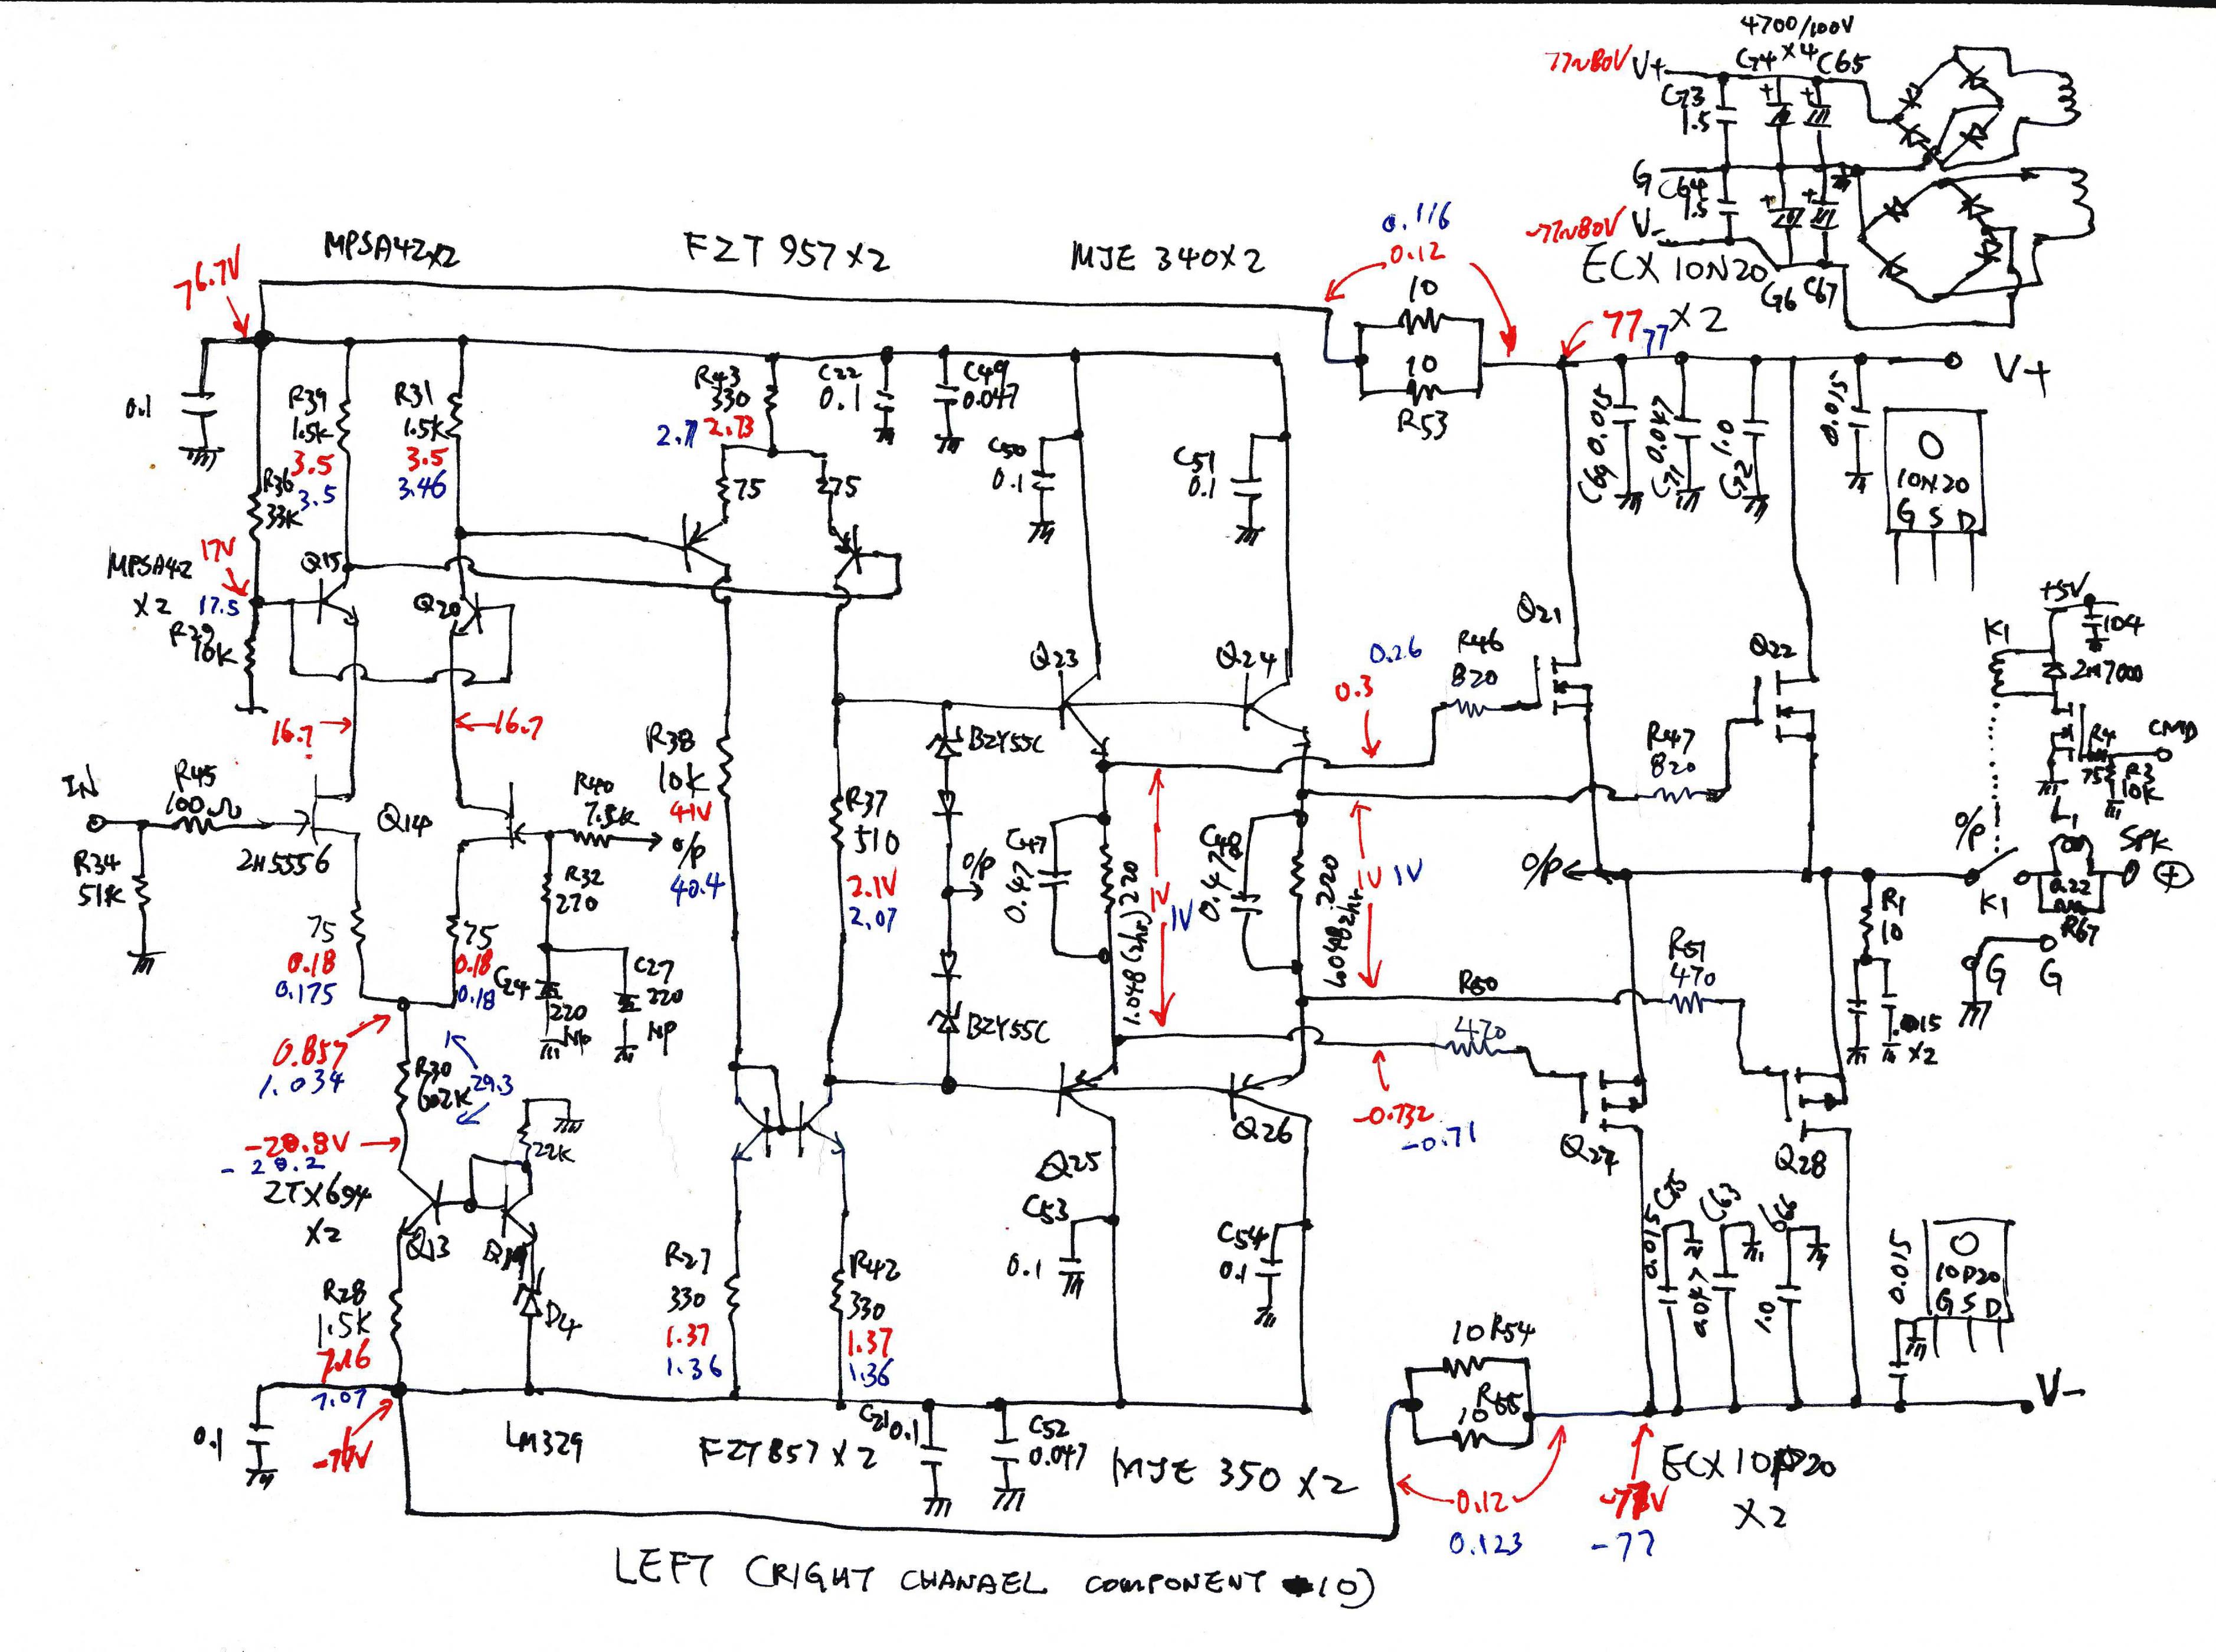 4700/100V
77~80V V+
C74 X4 C65
C73
1.5
G
C64
1.5
-77~80V
V-
C66 C67
ECX 10N20
X2
MPSA42X2
FZT 957X2
MJE 340X2
0.116
0.12
10
10
R53
77
77
V+
76.7V
0.1
R39
1.5K
3.5
3.5
R31
1.5K
3.5
3.46
R43
330
2.7 2.73
C22
0.1
C49
0.047
C50
0.1
C51
0.1
75
275
R36
33K
C69 0.015
C71 0.047
C72 1.0
0.015
10N20
G S D
MPSA42
X2
17V
17.5
R29
10K
Q15
Q20
16.7
16.7
Q23
Q24
0.26
0.3
R46
820
Q21
R47
820
Q22
+5V
104
K1
2N7000
R4
75
R3
10K
CMD
IN
R45
100Ω
R34
51K
Q14
2N5556
R40
7.5K
O/P
R38
10K
41V
40.4
R37
510
2.1V
2.07
BZY55C
O/P
BZY55C
C47
0.47
220
1.048 (2hr)
1V
1V
C48
0.47
220
1.048 2hr
1V
1V
O/P
O/P
K1
L1
0.22
R67
SPK
+
R1
10
.015
X2
G
G
75
0.18
0.175
75
0.18
0.18
R32
270
C24
220
NP
C27
220
NP
0.857
1.034
R30
602K
29.3
-28.8V
-28.2
ZTX694
X2
22K
Q13
D4
R28
1.5K
7.16
7.07
R27
330
1.37
1.36
R42
330
1.37
1.36
Q25
Q26
C53
0.1
C54
0.1
R50
470
R51
470
-0.732
-0.71
Q27
Q28
0.015
C63
0.047
C68
1.0
0.015
10P20
G S D
10 R54
R55
10
V-
0.1
-77V
LM329
FZT857X2
C21 0.1
C52
0.047
MJE 350 X2
0.12
0.123
-77V
-77
ECX10P20
X2
LEFT (RIGHT CHANAEL COMPONENT 10)